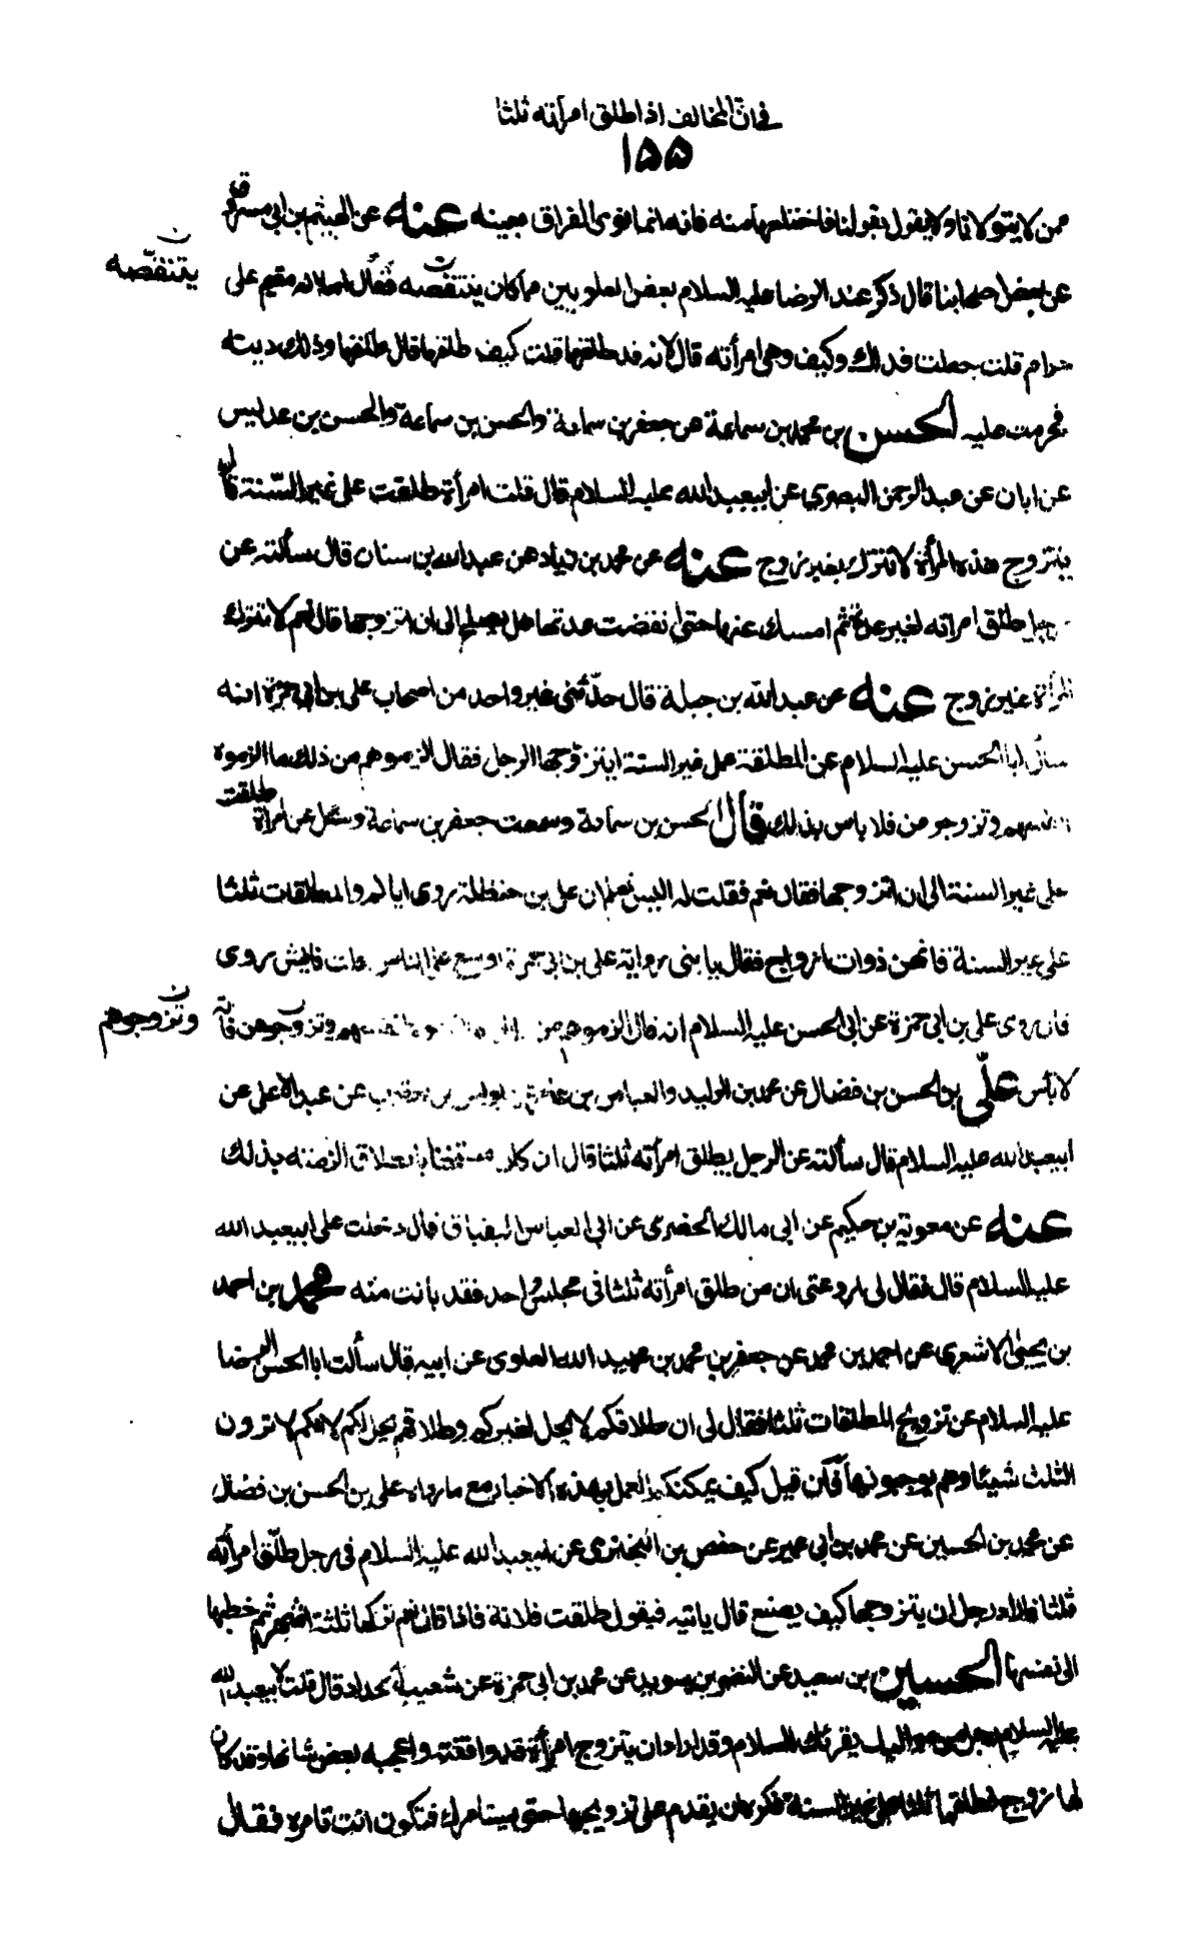 في ان المخالف اذا طلق امرأته ثلثا
١٥٥
ممن لا يتولانا ولا يقول بقولنا فاختلعها منه فانه انما نوى الفراق بعينه عنه عن الهيثم بن ابي مسروق
عن بعض اصحابنا قال ذكر عند الرضا عليه السلام بعض العلويين ممن كان ينتقصه فقال اما انه مقيم على
يتنقصه
حرام قلت جعلت فداك وكيف وهي امرأته قال لانه قد طلقها قلت كيف طلقها قال طلقها وذلك دينه
فحرمت عليه الحسن بن محمد بن سماعة عن جعفر بن سماعة والحسن بن سماعة والحسن بن عديس
عن ابان عن عبد الرحمن البصري عن ابيعبد الله عليه السلام قال قلت امرأة طلقت على غير السنة قال
يتزوج هذه المرأة لا تترك بغير زوج عنه عن محمد بن زياد عن عبد الله بن سنان قال سألته عن
رجل طلق امراته لغير عدة ثم امسك عنها حتى انقضت عدتها هل يصلح لي ان اتزوجها قال نعم لا تترك
المرأة بغير زوج عنه عن عبد الله بن جبلة قال حدثني غير واحد من اصحاب علي بن ابي حمزة انه
سأل ابا الحسن عليه السلام عن المطلقة على غير السنة ايتزوجها الرجل فقال الزموهم من ذلك ما الزموه
انفسهم وتزوجوهن فلا باس بذلك قال الحسن بن سماعة وسمعت جعفر بن سماعة وسئل عن امرأة طلقت
على غير السنة الى ان اتزوجها فقال نعم فقلت له اليس تعلم ان علي بن حنظلة روى اياكم والمطلقات ثلثا
على غير السنة فانهن ذوات ازواج فقال يا بني رواية علي بن ابي حمزة اوسع على الناس قلت فايش روى
قال روى علي بن ابي حمزة عن ابي الحسن عليه السلام انه قال الزموهم من انفسهم وتزوجوهن فانه
وتزوجوهم
لا بأس علي بن الحسن بن فضال عن محمد بن الوليد والعباس بن عن عبد الاعلى عن
ابيعبد الله عليه السلام قال سألته عن الرجل يطلق امرأته ثلثا قال ان كان مستخفا بالطلاق الزمته بذلك
عنه عن معوية بن حكيم عن ابي مالك الحضرمي عن ابي العباس البقباق قال دخلت على ابيعبد الله
عليه السلام قال فقال لي ارو عني ان من طلق امرأته ثلثا في مجلس واحد فقد بانت منه محمد بن احمد
بن يحيى الاشعري عن احمد بن محمد عن جعفر بن محمد بن عبيد الله العلوي عن ابيه قال سألت ابا الحسن الرضا
عليه السلام عن تزويج المطلقات ثلثا فقال لي ان طلاقكم لا يحل لغيركم وطلاقهم يحل لكم لانكم لا ترون
الثلث شيئا وهم يوجبونها فان قيل كيف يمكنكم العمل بهذه الاخبار مع ما رواه علي بن الحسن بن فضال
عن محمد بن الحسين عن محمد بن ابي عمير عن حفص بن البختري عن ابيعبد الله عليه السلام في رجل طلق امرأته
ثلثا فاراد رجل ان يتزوجها كيف يصنع قال ياتيه فيقول طلقت فلانة فاذا قال نعم تركها ثلثة اشهر ثم خطبها
الى نفسها الحسين بن سعيد عن النضر بن سويد عن محمد بن ابي حمزة عن شعيب الحداد قال قلت لابيعبد الله
عليه السلام رجل من مواليك يقرئك السلام وقد اراد ان يتزوج امرأة قد وافقته واعجبه بعض شانها وقد كان
لها زوج فطلقها ثلثا على غير السنة فكره ان يقدم على تزويجها حتى يستامرك فتكون انت تامره فقال